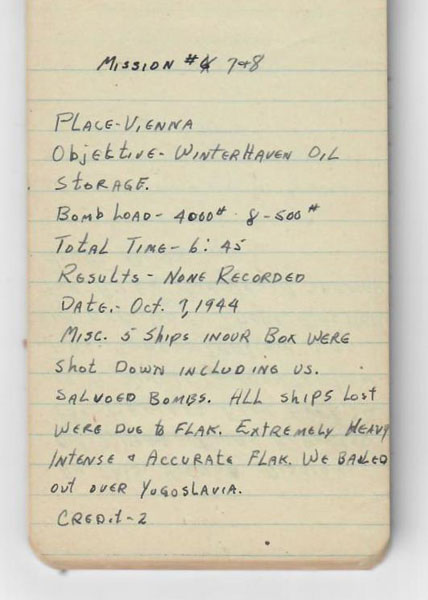 Mission # 7+8
Place - Vienna
Objektive - Winterhaven Oil
Storage.
Bomb Load - 4000# 8-500#
Total Time - 6:45
Results - None Recorded
Date. - Oct. 7, 1944
Misc. 5 ships in our Box were
shot down including us.
Salvoed Bombs. All ships lost
were due to Flak. Extremely Heavy
Intense & Accurate Flak. We Bailed
out over Yugoslavia.
Credit - 2